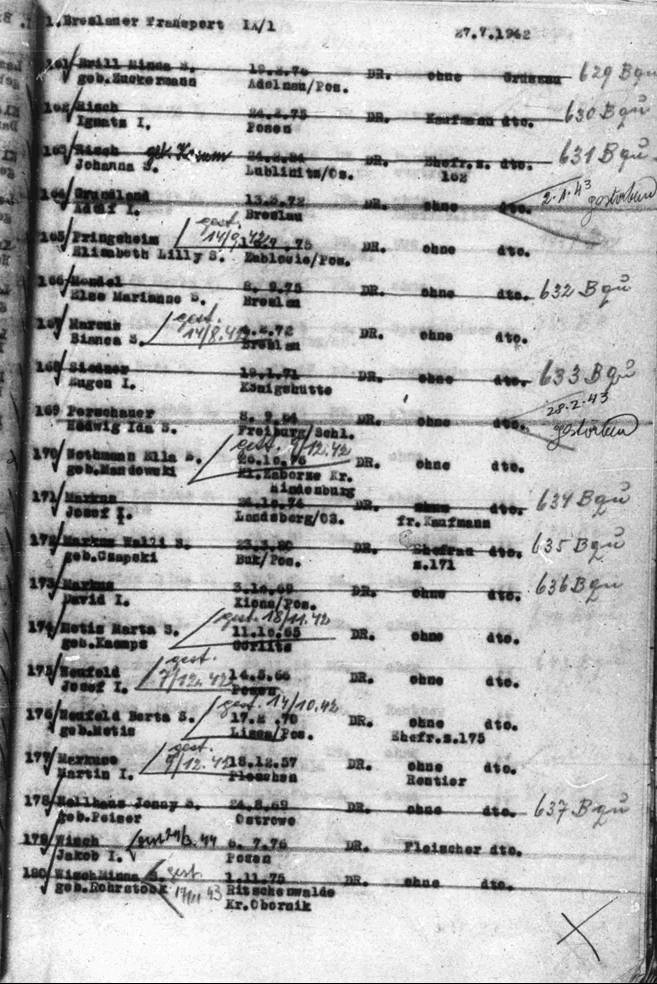 1.Breslauer Transport IX/1 27.7.1942
161 Brill Minda S. 19.2.76 DR. ohne Grüssau 629 Bqu
geb.Zuckermann Adelnau/Pos.
162 Risch 24.2.75 DR. Kaufmann dto. 630 Bqu
Ignatz I. Posen
163 Risch DR. Ehefr.z. dto. 631 Bqu
Johanna S. Lublinitz/Os. 162
164 Grundland 13.5.72 DR. ohne dto. 2.1.43 gestorben
Adolf I. Breslau
165 Pringsheim gest. 14/9.42 DR. ohne dto.
Elisabeth Lilly S. Zablowie/Pos.
166 Mendel 8. 9.75 DR. ohne dto. 632 Bqu
Else Marianne S. Breslau
167 Marcus gest. 14/8.42 DR. ohne dto.
Bianca S. Breslau
168 Siedner 19.1.71 DR. ohne dto. 633 Bqu
Eugen I. Königshütte
169 Perschauer DR. ohne dto. 28.2.43
Hedwig Ida S. Freiburg/Schl. gestorben
170 Nothmann Ella S. gest. 12.42 DR. ohne dto.
geb.Mandowski Kl.Zaborze Kr.
Hindenburg
171 Markus 24.10.74 DR. ohne dto. 634 Bqu
Josef I. Landsberg/OS. fr.Kaufmann
172 Markus Walli S. DR. Ehefrau dto. 635 Bqu
geb.Czapski Buk/Pos. z.171
173 Markus 3.10.69 DR. ohne dto. 636 Bqu
David I. Xions/Pos.
174 Metis Marta S. gest. 18/11.42 11.10.65 DR. ohne dto.
geb.Kaempe Görlitz
175 Neufeld gest. 14.5.66 DR. ohne dto.
Josef I. 7/12.42 Posen
176 Neufeld Berta S. gest. 14/10.42 17.2 .70 DR. ohne dto.
geb.Metis Lissa/Pos. Ehefr.z.175
177 Markuse gest. 18.12.57 DR. ohne dto.
Martin I. 9/12.42 Pleschen Rentier
178 Hellhans Jenny S. 24.8.69 DR. ohne dto. 637 Bqu
geb.Peiser Ostrowo
179 Wisch 6. 7.76 DR. Fleischer dto.
Jakob I. Posen
180 WischMinna S. gest. 1.11.75 DR. ohne dto.
geb.Rohrstock 17/11 43 Ritschenwalde
Kr.Obornik